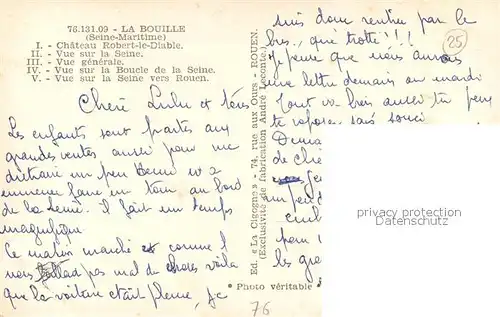 76.131.09 - LA BOUILLE
(Seine-Maritime)
I. - Château Robert-le-Diable.
II. - Vue sur la Seine.
III. - Vue générale.
IV. - Vue sur la Boucle de la Seine.
V. - Vue sur la Seine vers Rouen.
Chere Lulu et
Les enfants sont partes aux
grandes ventes aussi pour me
distraire un peu
emmener faire un tour au bord
de la Seine. il fait un temps
magnifique.
Ce matin marché et comme l
pas mal de choses voila
que la voiture etait pleine, je
Ed. « La Cigogne » - 74, rue aux Ours - ROUEN.
(Exclusivité de fabrication André Leconte.)
Photo véritable
suis donc rentrée par le
bus, que trotte !!!
Je pense que nous aurons
une lettre demain ou mardi
Tout va bien aussi tu peux
te reposer sans souci.
de che
un peu
pour
les gra
25
76
privacy protection
Datenschutz